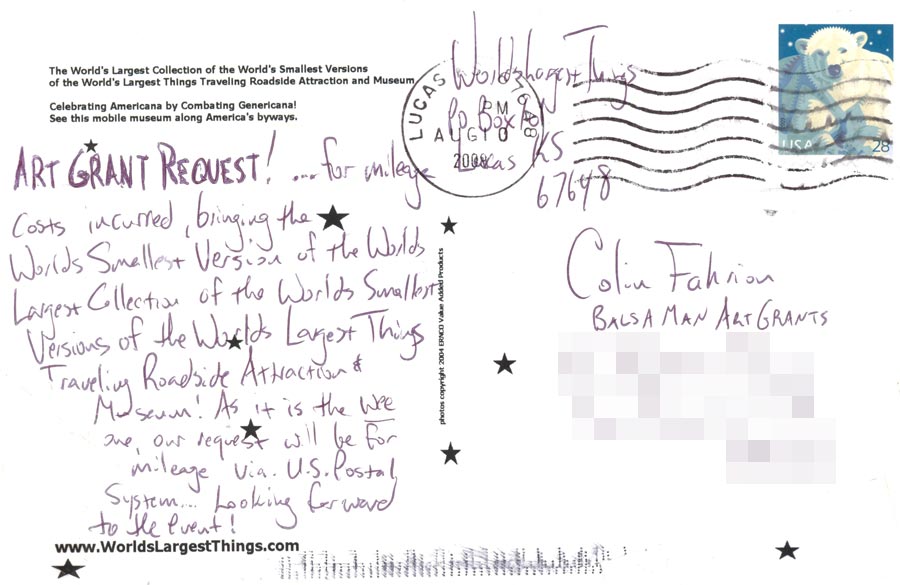 The World's Largest Collection of the World's Smallest Versions
of the World's Largest Things Traveling Roadside Attraction and Museum
Celebrating Americana by Combating Genericana!
See this mobile museum along America's byways.
ART GRANT REQUEST! ...for mileage
costs incurred, bringing the
Worlds Smallest Version of the Worlds
Largest Collection of the Worlds Smallest
Versions of the Worlds Largest Things
Traveling Roadside Attraction &
Museum! As it is the wee
one, our request will be for
mileage via U.S. Postal
System... Looking forward
to the event!
www.WorldsLargestThings.com
photos copyright 2004 ERNCO Value Added Products
Worlds Largest Things
PO Box
Lucas KS
67648
LUCAS
PM
AUG 10
2008
USA
28
Colin Fahrion
BALSA MAN ART GRANTS